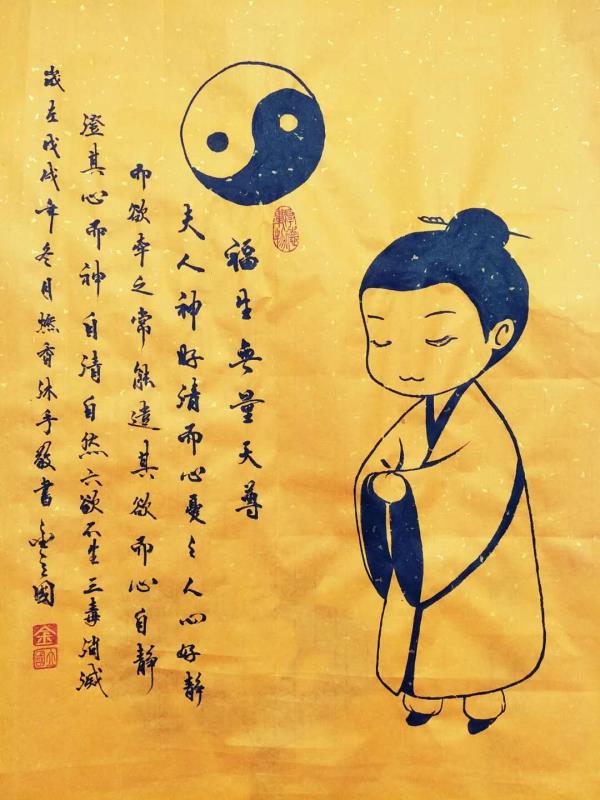 福生無量天尊
夫人神好清而心憂之人心好靜
而欲牽之常能遣其欲而心自靜
澄其心而神自清自然六欲不生三毒消滅
歲在戊戌年冬月燃香沐手敬書
金